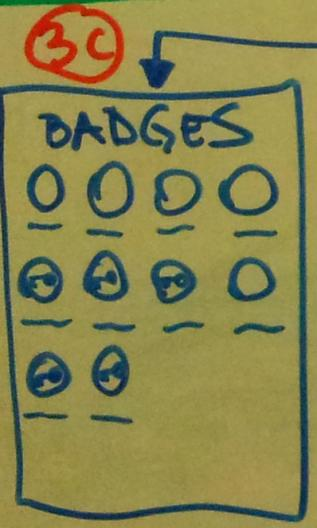 3C
BADGES